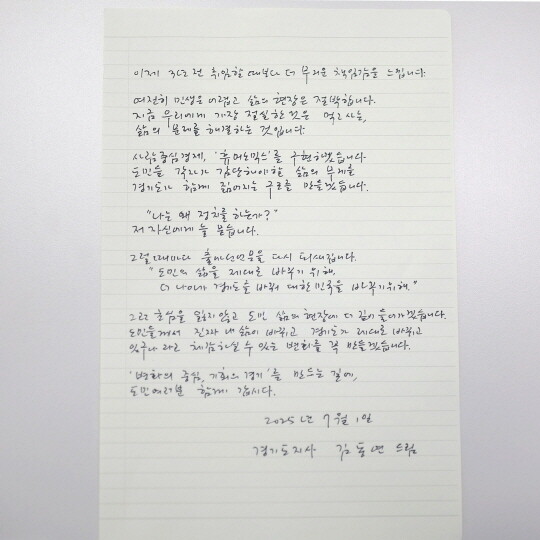 이제 3년 전 취임할 때보다 더 무거운 책임감을 느낍니다.
여전히 민생은 어렵고 삶의 현장은 절박합니다.
지금 우리에게 가장 절실한 것은 먹고사는,
삶의 문제를 해결하는 것입니다.
사람중심경제, '휴머노믹스'를 구현하겠습니다.
도민들 각자가 감당해야할 삶의 무게를
경기도가 함께 짊어지는 구조를 만들겠습니다.
"나는 왜 정치를 하는가?"
저 자신에게 늘 묻습니다.
그럴 때마다 출마선언문을 다시 되새깁니다.
"도민의 삶을 제대로 바꾸기 위해,
더 나아가 경기도를 바꿔 대한민국을 바꾸기 위해."
그런 초심을 잃지 않고 도민 삶의 현장에 더 깊이 들어가겠습니다.
도민들께서 진짜 내 삶이 바뀌고 경기도가 제대로 바뀌고
있구나 라고 체감하실 수 있는 변화를 꼭 만들겠습니다.
'변화의 중심, 기회의 경기'를 만드는 길에,
도민여러분 함께 갑시다.
2025년 7월 1일
경기도지사 김동연 드림